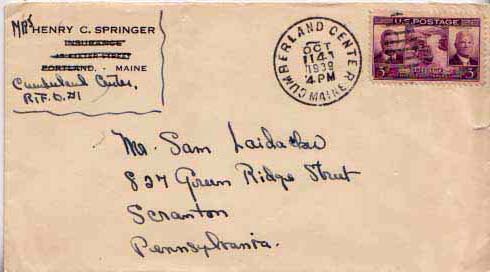 Mrs HENRY C. SPRINGER
INSURANCE
PORTLAND, - MAINE
Cumberland Center,
R.F.D. #1
CUMBERLAND CENTER
OCT
14
1939
4 PM
MAINE
U.S. POSTAGE
3¢ 3¢
Mr. Sam Laidacker
827 Green Ridge Street
Scranton
Pennsylvania.